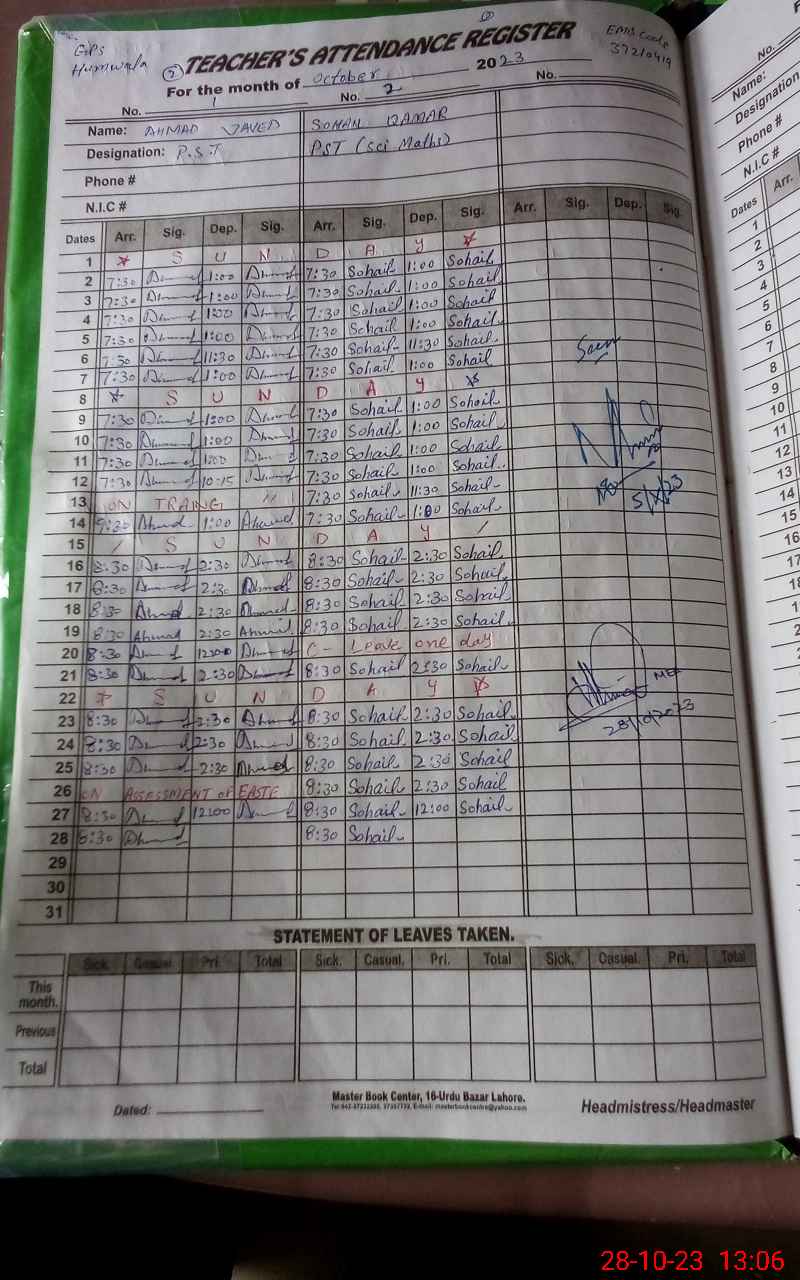 GPS
Humwala
TEACHER'S ATTENDANCE REGISTER
EMIS Code
37210419
For the month of October 2023
No. 1 No. 2 No.
Name: AHMAD JAVED SOHAN QAMAR
Designation: P.S.T PST (Sci Maths)
Phone #
N.I.C #
Dates Arr. Sig. Dep. Sig. Arr. Sig. Dep. Sig. Arr. Sig. Dep. Sig.
1 * S U N D A Y *
2 7:30 1:00 7:30 Sohail 1:00 Sohail
3 7:30 1:00 7:30 Sohail 1:00 Sohail
4 7:30 1:00 7:30 Sohail 1:00 Sohail
5 7:30 1:00 7:30 Sohail 1:00 Sohail
6 7:30 11:30 7:30 Sohail 11:30 Sohail
7 7:30 1:00 7:30 Sohail 1:00 Sohail
8 * S U N D A Y *
9 7:30 1:00 7:30 Sohail 1:00 Sohail
10 7:30 1:00 7:30 Sohail 1:00 Sohail
11 7:30 1:00 7:30 Sohail 1:00 Sohail
12 7:30 10:15 7:30 Sohail 1:00 Sohail
13 ON TRAING 〃 7:30 Sohail 11:30 Sohail
14 Ahmad 1:00 Ahmad 7:30 Sohail 1:00 Sohail
15 / S U N D A Y /
16 8:30 2:30 8:30 Sohail 2:30 Sohail
17 8:30 2:30 8:30 Sohail 2:30 Sohail
18 8:30 Ahmad 2:30 Ahmad 8:30 Sohail 2:30 Sohail
19 8:30 Ahmad 2:30 Ahmad 8:30 Sohail 2:30 Sohail
20 8:30 12:00 C- Leave one day
21 8:30 2:30 8:30 Sohail 2:30 Sohail
22 * S U N D A Y *
23 8:30 2:30 8:30 Sohail 2:30 Sohail
24 8:30 2:30 8:30 Sohail 2:30 Sohail
25 8:30 2:30 Ahmad 8:30 Sohail 2:30 Sohail
26 ON ASSESSMENT OF 8:30 Sohail 2:30 Sohail
27 8:30 12:00 8:30 Sohail 12:00 Sohail
28 8:30 8:30 Sohail
29
30
31
5/X/23
MEA
28/10/2023
STATEMENT OF LEAVES TAKEN.
Sick. Casual. Pri. Total Sick. Casual. Pri. Total Sick. Casual. Pri. Total
This month.
Previous
Total
Master Book Center, 16-Urdu Bazar Lahore.
Dated:
Headmistress/Headmaster
No.
Name:
Designation
Phone #
N.I.C #
Dates Arr.
1
2
3
4
5
6
7
8
9
10
11
12
13
14
15
16
28-10-23 13:06